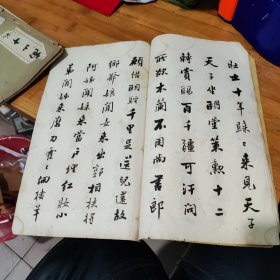 壮士十年歸〻来見天子
天子坐明堂策勳十二
轉賞賜百千疆可汗問
所欲木蘭不用尚書郎
願借明駝千里足送兒還故
鄉爺娘聞女来出郭相扶將
阿姊聞妹来當户理红妝小
弟聞姊来磨刀霍〻向猪羊